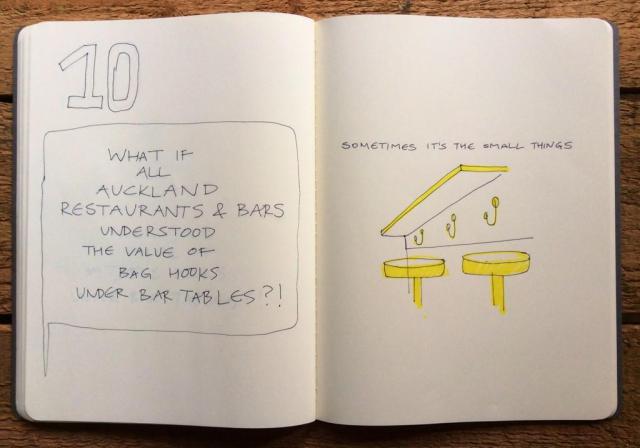 10
WHAT IF
ALL
AUCKLAND
RESTAURANTS & BARS
UNDERSTOOD
THE VALUE OF
BAG HOOKS
UNDER BAR TABLES?!
SOMETIMES IT'S THE SMALL THINGS